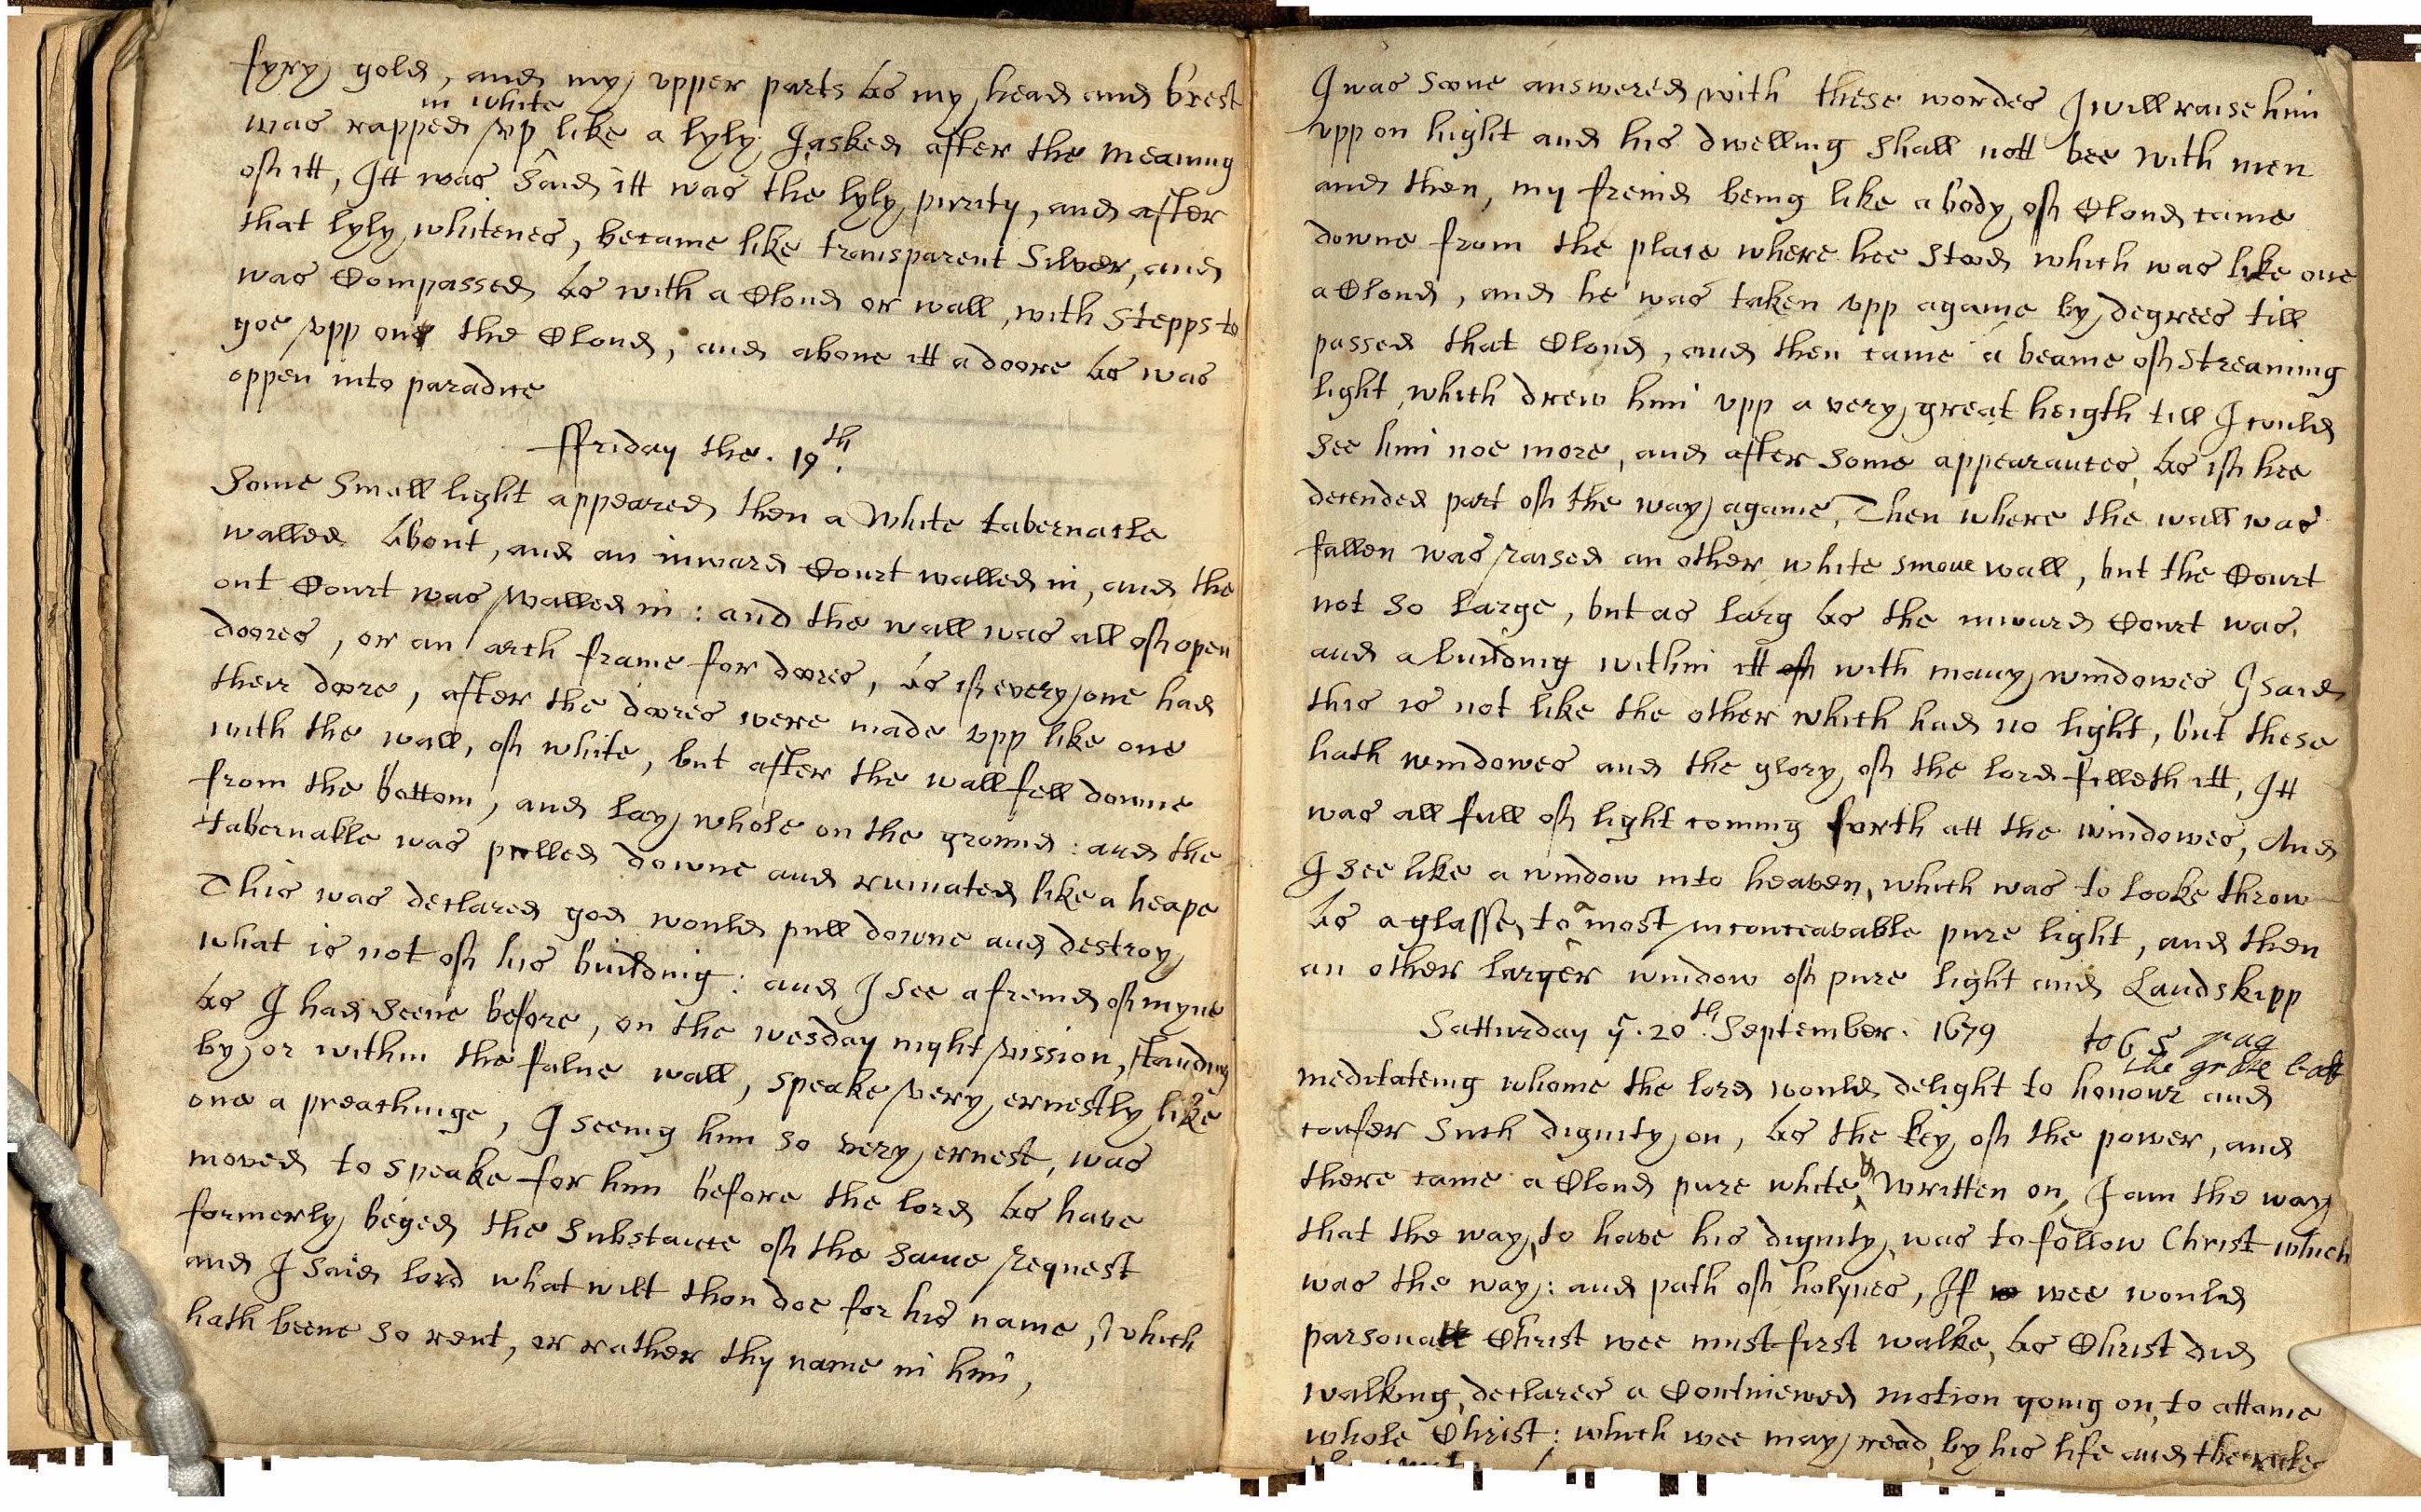 fyry gold, and my upper parts as my head and brest
in white
was rapped up like a lyly I asked after the meaning
of itt, Itt was said itt was the lyly purity, and after
that lyly whitenes, became like transparent Silver, and
was Compassed as with a Cloud or wall, with Stepps to
goe upp one the Cloud, and above itt a doore as was
oppen into paradice
ffriday the . 19th.
Some Small light appeared then a White tabernacle
walled About, and an inward Court walled in, and the
out Court was walled in : and the wall was all of open
doores, or an arch frame for doores, as if every one had
their doore, after the doores were made upp like one
with the wall, of white, but after the wall fell downe
from the bottom, and lay whole on the ground : and the
tabernakle was pulled downe and ruinated like a heape
This was declared god would pull downe and destroy
what is not of his buildnig : and I see a freind of myne
as I had seene before, on the wesday night vission, standing
by or within the falne wall, speake very ernestly like
one a preachinge, I seeing him so very ernest, was
moved to speake for him before the lord as have
formerly beged the Substance of the same request
and I said lord what wilt thou doe for his name, Which
hath beene so rent, or rather thy name in him,
I was soone answered with these wordes I will raise him
upp on hight and his dwelling shall nott bee with men
and then, my freind being like a body of Cloud came
downe from the place where hee stood which was like one
a Cloud, and he was taken upp againe by degrees till
passed that Cloud, and then came a beame of streaming
light, which drew him upp a very great heigth till I could
see him noe more, and after some appearances, as if hee
decended part of the way againe, Then where the wall was
fallen was raised an other white wall, but the Court
not so large, but as larg as the inward Court was.
and a buildnig within itt of with many windowes I said
this is not like the other which had no light, but these
hath windowes and the glory of the lord filleth itt, Itt
was all full of light coming forth att the windowes, And
I see like a window into heaven, which was to looke throw
as a glasse, to a most inconceavable pure light, and then
an other larger window of pure light and Landskipp
Satturday ye. 20th. September. 1679
to 65 pag
the
meditateing whome the lord would delight to honour and
confer such dignity on, as the key of the power, and
there came a Cloud pure white, Written on, I am the way
that the way, to have his dignity, was to follow Christ which
was the way : and path of holynes, If wee would
parsonall Christ wee must first walke, as Christ did
walking, declares a Contniewed motion going on, to attaine
whole Christ : which wee may read, by his life and